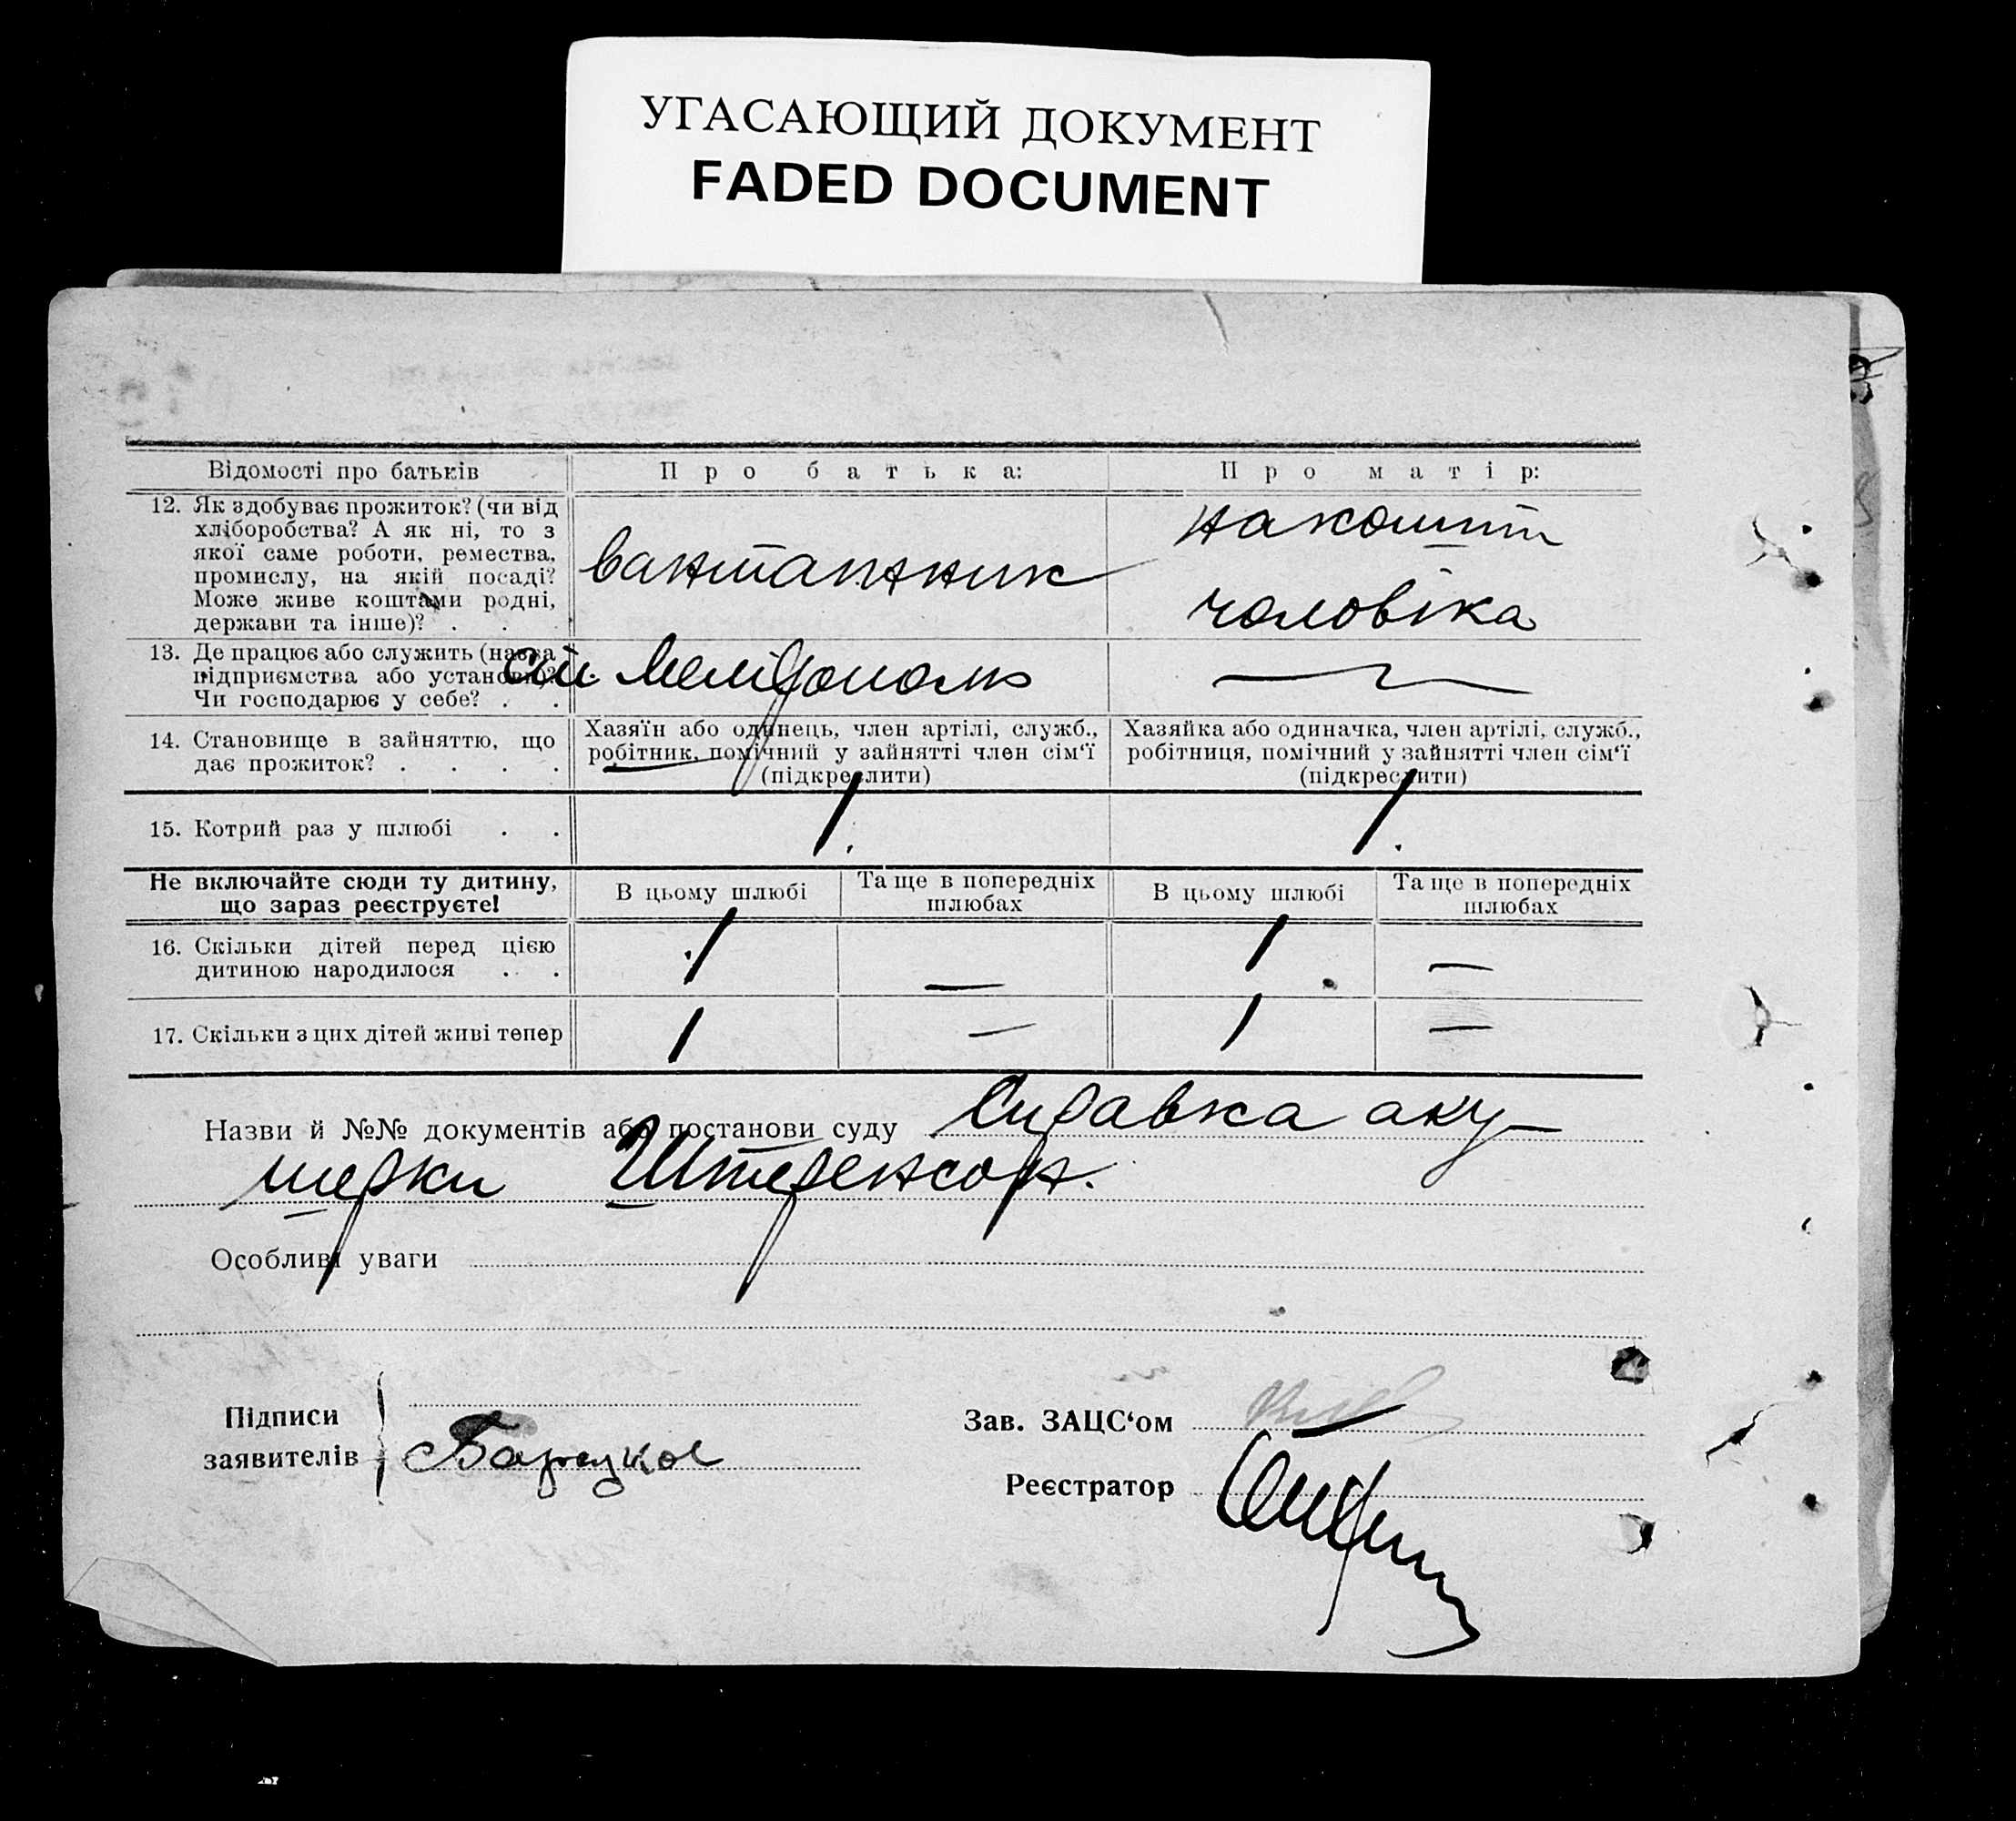 УГАСАЮЩИЙ ДОКУМЕНТ
FADED DOCUMENT
Відомості про батьків
Про батька:
Про матір:
12. Як здобуває прожиток? (чи від
хліборобства? А як ні, то з
якої саме роботи, ремества,
промислу, на якій посаді?
Може живе коштами родні,
держави та інше)? . .
вантажник
на кошти
чоловіка
13. Де працює або служить (назва
підприємства або установи)?
Чи господарює у себе? . .
ст. Мелітополь
—
14. Становище в зайняттю, що
дає прожиток? . . . .
Хазяїн або одинець, член артілі, служб.,
робітник, помічний у зайнятті член сім‘ї
(підкреслити)
Хазяйка або одиначка, член артілі, служб.,
робітниця, помічний у зайнятті член сім‘ї
(підкреслити)
15. Котрий раз у шлюбі . .
1.
1.
Не включайте сюди ту дитину,
що зараз реєструєте!
В цьому шлюбі
Та ще в попередніх
шлюбах
В цьому шлюбі
Та ще в попередніх
шлюбах
16. Скільки дітей перед цією
дитиною народилося . .
1
—
1
—
17. Скільки з цих дітей живі тепер
1
—
1
—
Назви й №№ документів або постанови суду Справка аку-
шерки Штеренсон.
Особливі уваги
Підписи
заявителів
Зав. ЗАЦС‘ом
Реєстратор